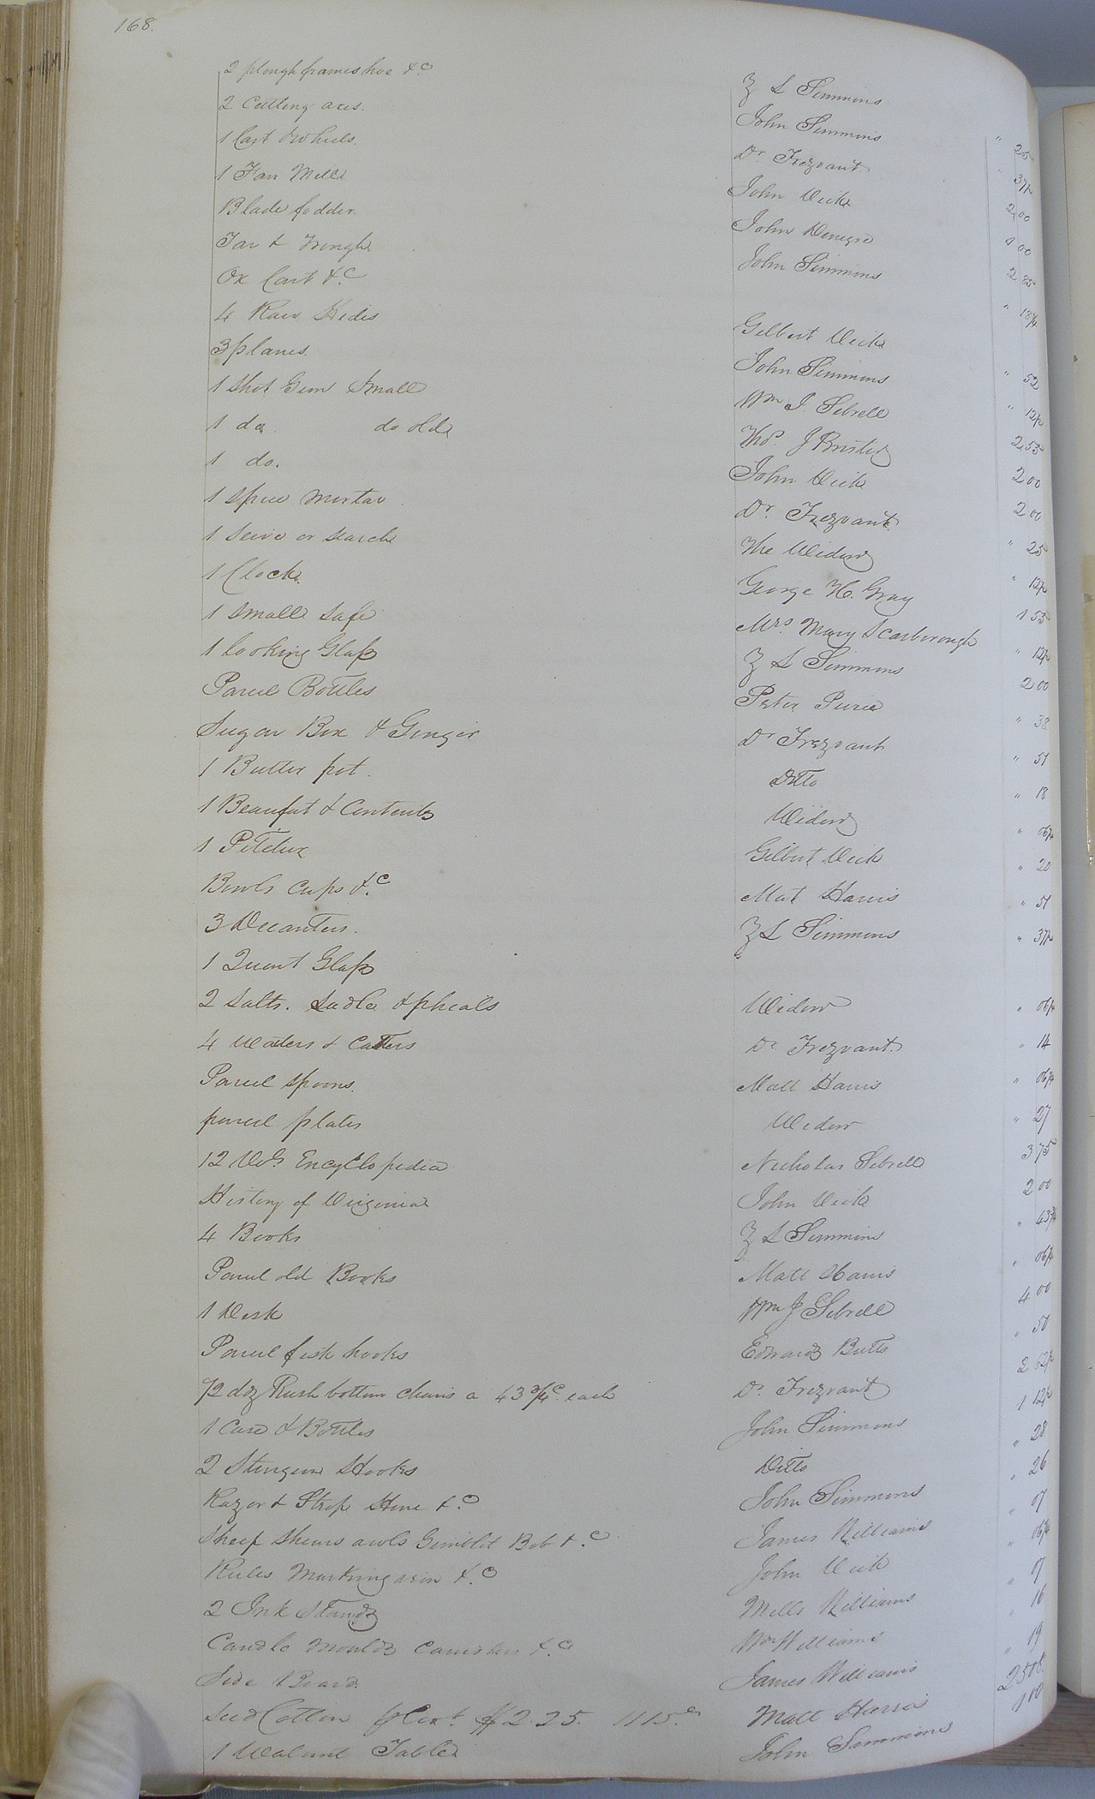 168.
2 plough frames hoe &c Z L Simmons " 25
2 Cutting axes. John Simmons " 37½
1 Cart & Wheels. Dr Trezvant 2 00
1 Fan Mill John Vick 1 00
Blade fodder John 2 85
Tar & John Simmons " 18¾
Ox Cart &c
4 Raw Hides Gilbert Vick " 52
3 planes John Simmons " 12½
1 Shot Gun Small Wm J. Sebrell 2 55
1 do do old Tho. J 2 00
1 do. John Vick 2 00
1 Spice Mortar Dr. Trezvant " 25
1 Seive or Search The Widow " 12½
1 Clock George H. Gray 1 55
1 Small Safe Mrs. Mary Scarborough " 12½
1 looking Glass Z L Simmons 2 00
Parcel Bottles Peter " 38
Sugar Box & Ginger Dr Trezvant " 51
1 Butter pot. Ditto " 18
1 Beaufat & Contents Widow " 06¼
1 Pitcher Gilbert Vick " 20
Bowls Cups &c Mat Harris " 51
3 Decanters. Z L Simmons " 37½
1 Quart Glass
2 Salts. Ladle & pheals Widow " 06¼
4 Waiters & Casters Dr Trezvant. " 14
Parcel Spoons. Matt Harris " 06¼
parcel plates Widow " 27
12 Vols Encyclopedia Nicholas Sebrell 3 75
History of Virginia John Vick 2 00
4 Books Z L Simmons " 43¾
Parcel old Books Matt Harris " 06¼
1 Desk Wm J Sebrell 4 00
Parcel fish hooks Edward Butts " 50
½ doz Rush bottom chairs a 43¾c. each Dr. Trezvant 2 62½
1 Case & Bottles John Simmons 1 12½
2 Sturgeon Hooks Ditto " 28
Razor & Strop Hone &c John Simmons " 26
Sheep Shears awls Gimblet Bob &c James Williams " 07
Rules Marking iron &c John Vick " 06¼
2 Ink Stands Mills Williams " 07
Candle Moulds Canister &c Wm Williams " 16
Side Board James Williams " 19
Seed Cotton Cwt. $2.25. 1115 Matt Harris 25 08
1 Walnut Table John Simmons 1 00